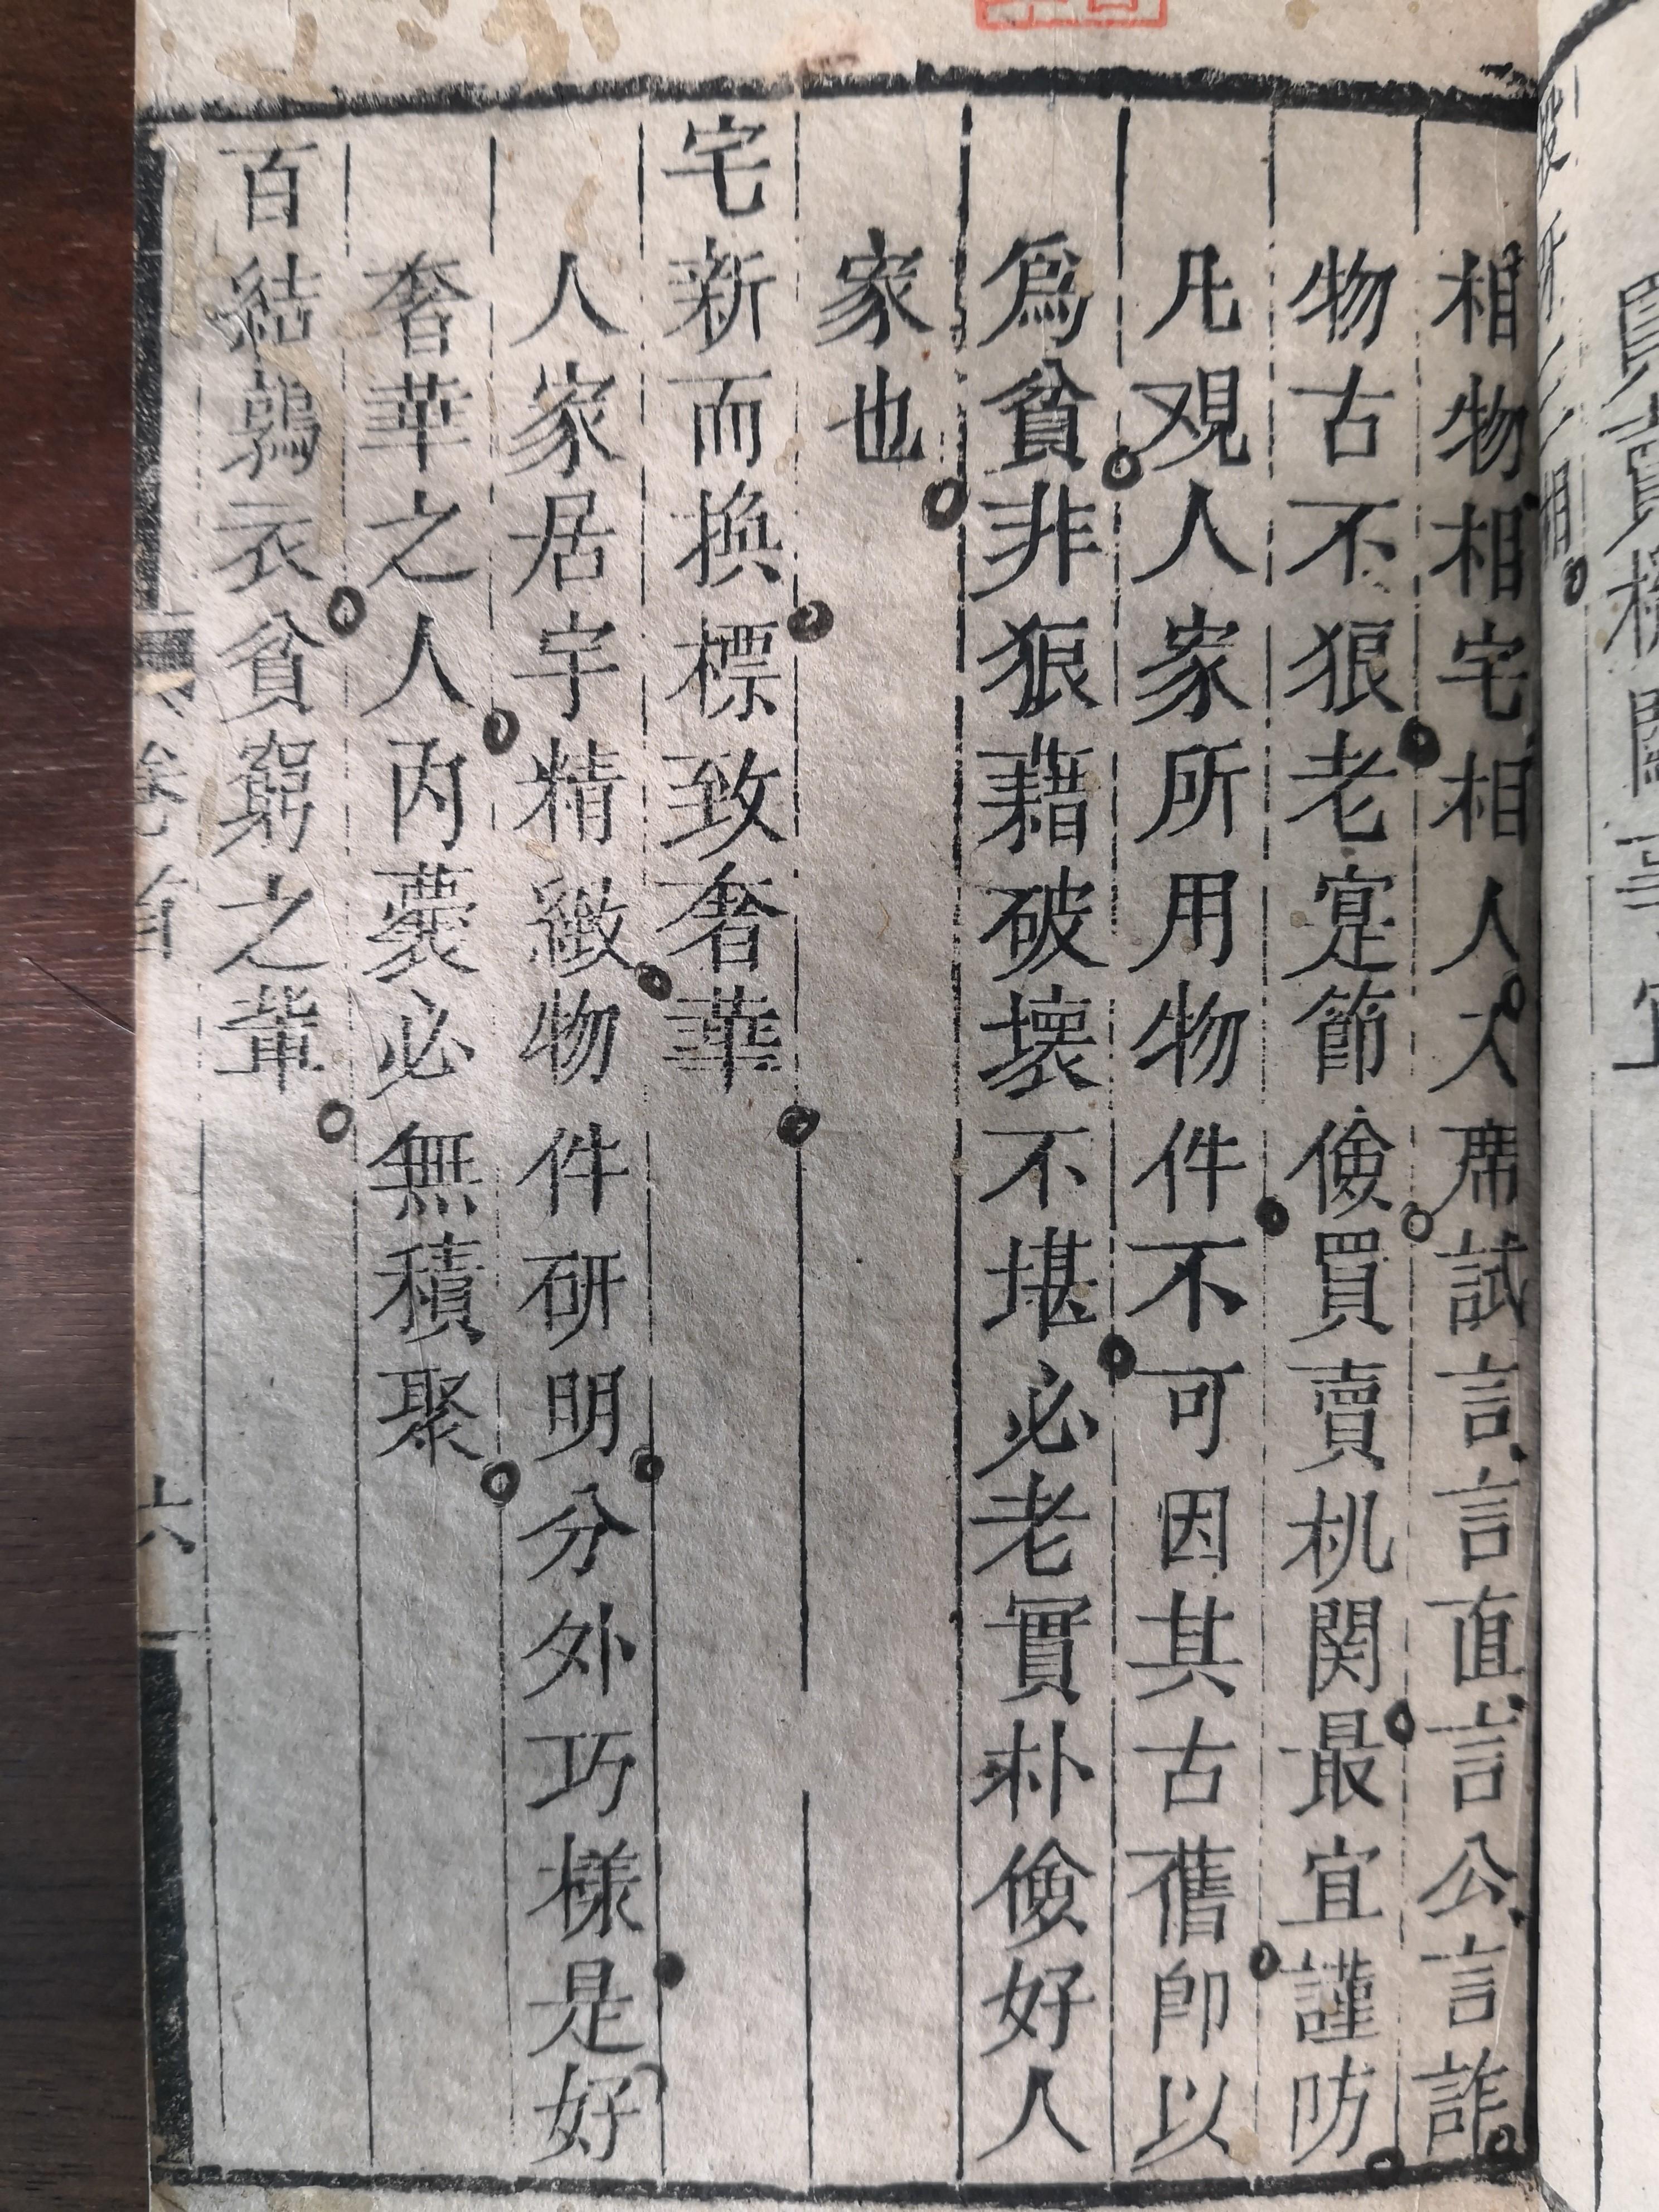 相物相宅相人人席試言言直言公言詐
物古不狠老寔節儉買賣机関最宜謹防
凡观人家所用物件不可因其古舊即以
為貧非狠藉破壞不堪必老實朴儉好人
家也
宅新而換標致奢華
人家居宇精緻物件研明分外巧樣是好
奢華之人內囊必無積聚
百結鶉衣貧窮之輩
六